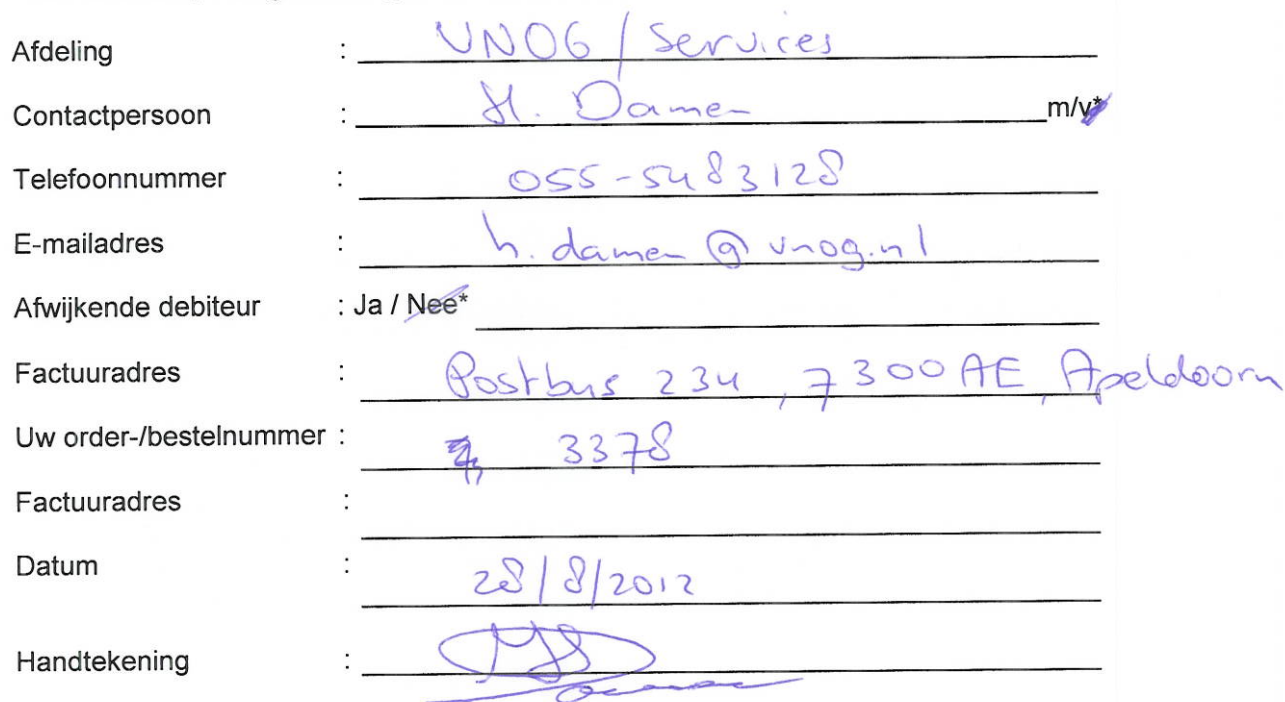 Afdeling : VNOG / Services
Contactpersoon : H. Damen m/v*
Telefoonnummer : 055-5483128
E-mailadres : h.damen@vnog.nl
Afwijkende debiteur : Ja / Nee*
Factuuradres : Postbus 234, 7300 AE, Apeldoorn
Uw order-/bestelnummer : 3378
Factuuradres :
Datum : 28/8/2012
Handtekening :